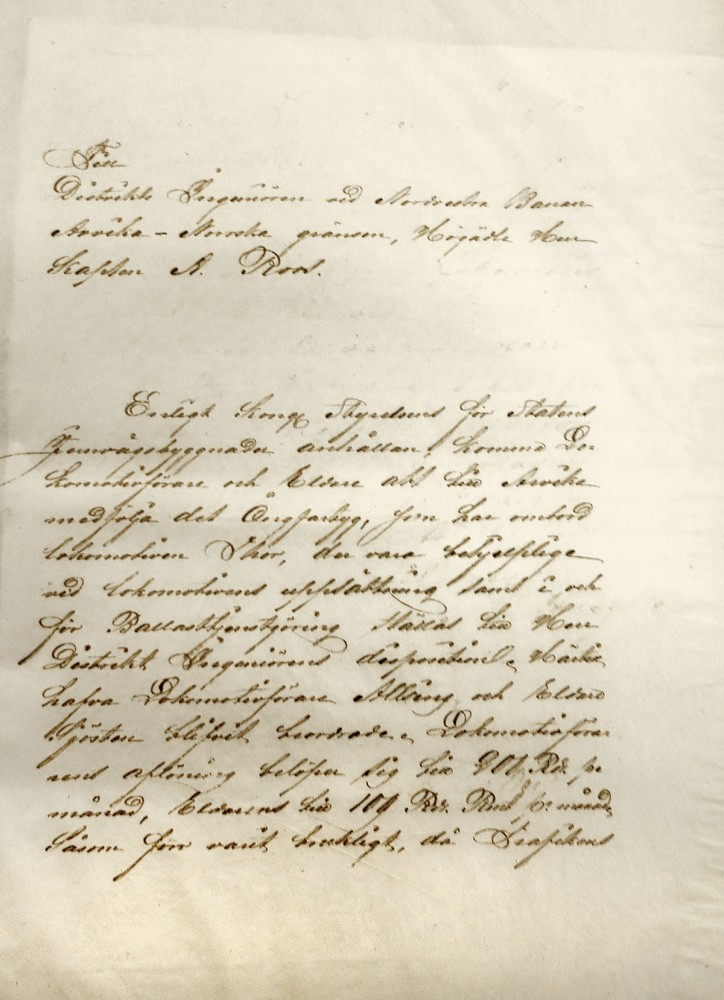 Till
Distrikts Ingeniören vid Nordvestra Banan
Arvika - Norska gränsen, Högädle Herr
Kapten A. Roos.
Enligt Kongl Styrelsens för Statens
Jernvägsbyggnader anhållan, komma Lo-
komotivförare och Eldare att till Arvika
medfölja det Ångfartyg, som har ombord
lokomotiven Thor, der vara behjelplige
vid lokomotivens uppsättning samt i och
för Ballasttjenstgöring ställas till Herr
Distrikt Ingeniörens disposition. Härtill
hafva Lokomotivförare Alling och Eldare
Gösten blifvit beordrade. Lokomotivföra-
rens aflöning belöper sig till Rdr pr
månad, Eldarens till 109 Rdr Rmt pr månad
Såsom förr varit brukligt, då Trafikens